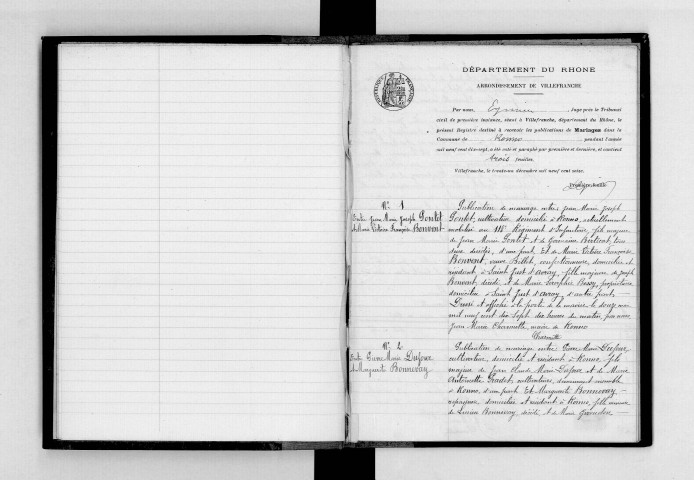 DÉPARTEMENT DU RHONE
ARRONDISSEMENT DE VILLEFRANCHE
Par nous, Juge près le Tribunal
civil de première instance, séant à Villefranche, département du Rhône, le
présent Registre destiné à recevoir les publications de Mariages dans la
Commune de Ronno pendant l'année
mil neuf cent dix-sept, a été coté et paraphé par première et dernière, et contient
trois feuillets.
Villefranche, le trente un décembre mil neuf cent seize.
N° 1
Entre Jean Marie Joseph Pontet
et Marie Victoire Françoise Bonvent
Publication de mariage entre Jean Marie Joseph
Pontet, cultivateur domicilié à Ronno, actuellement
mobilisé au 118e Régiment d'Infanterie, fils majeur
de Jean Marie Pontet et de tous
deux décédés, d'une part, Et de Marie Victoire Françoise
Bonvent, veuve Billet, domiciliée et
résidant à Saint Just d'Avray, fille majeure de Joseph
Bonvent décédé et de Marie propriétaire
domiciliée à Saint Just d'Avray, d'autre part.
Dressé et affiché à la porte de la mairie le douze
mil neuf cent dix sept dix heures du matin, par nous
Jean Marie maire de Ronno
N° 2
Entre Pierre Marie Dufour
et Marguerite Bonnevay
Publication de mariage entre Pierre Marie Dufour
cultivateur, domicilié et résidant à Ronno, fils
majeur de Jean Claude Marie Dufour et de Marie
Antoinette Pradet, cultivateurs, demeurant ensemble
à Ronno, d'une part Et Marguerite Bonnevay
domiciliée et résidant à Ronno, fille mineure
de Bonnevay, décédé, et de Marie